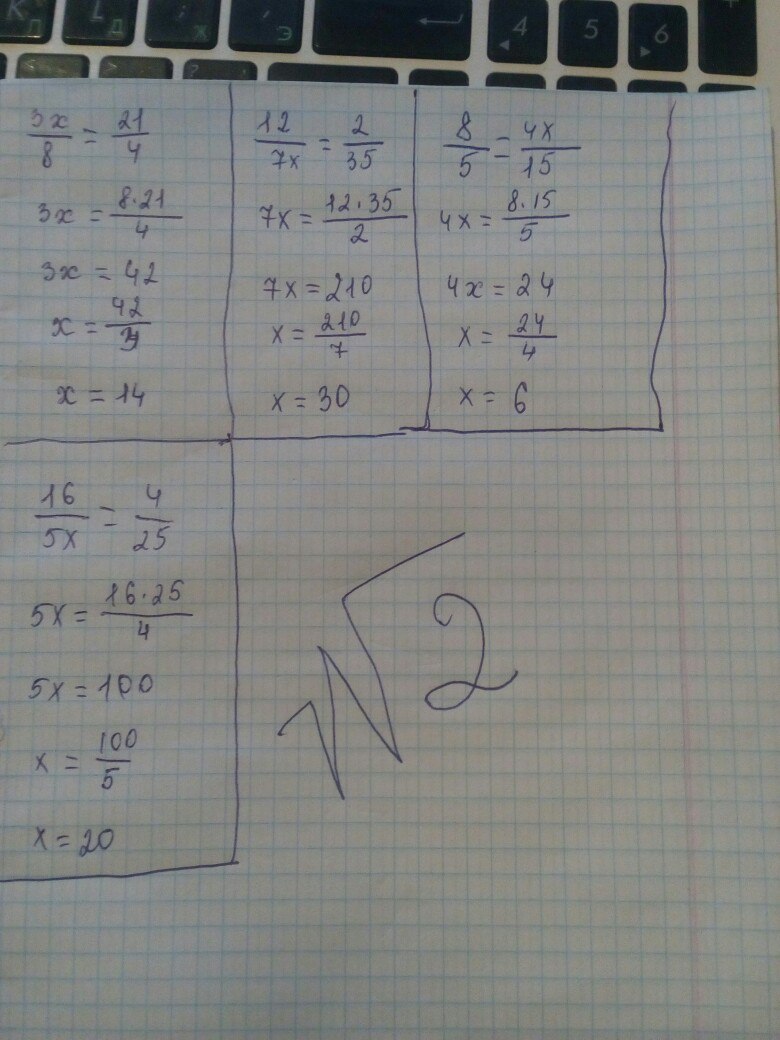 K Л L Д ; Ж ' Э 4 5 6
3x/8 = 21/4
3x = 8·21/4
3x = 42
x = 42/3
x = 14
12/7x = 2/35
7x = 12·35/2
7x = 210
x = 210/7
x = 30
8/5 = 4x/15
4x = 8·15/5
4x = 24
x = 24/4
x = 6
16/5x = 4/25
5x = 16·25/4
5x = 100
x = 100/5
x = 20
№2